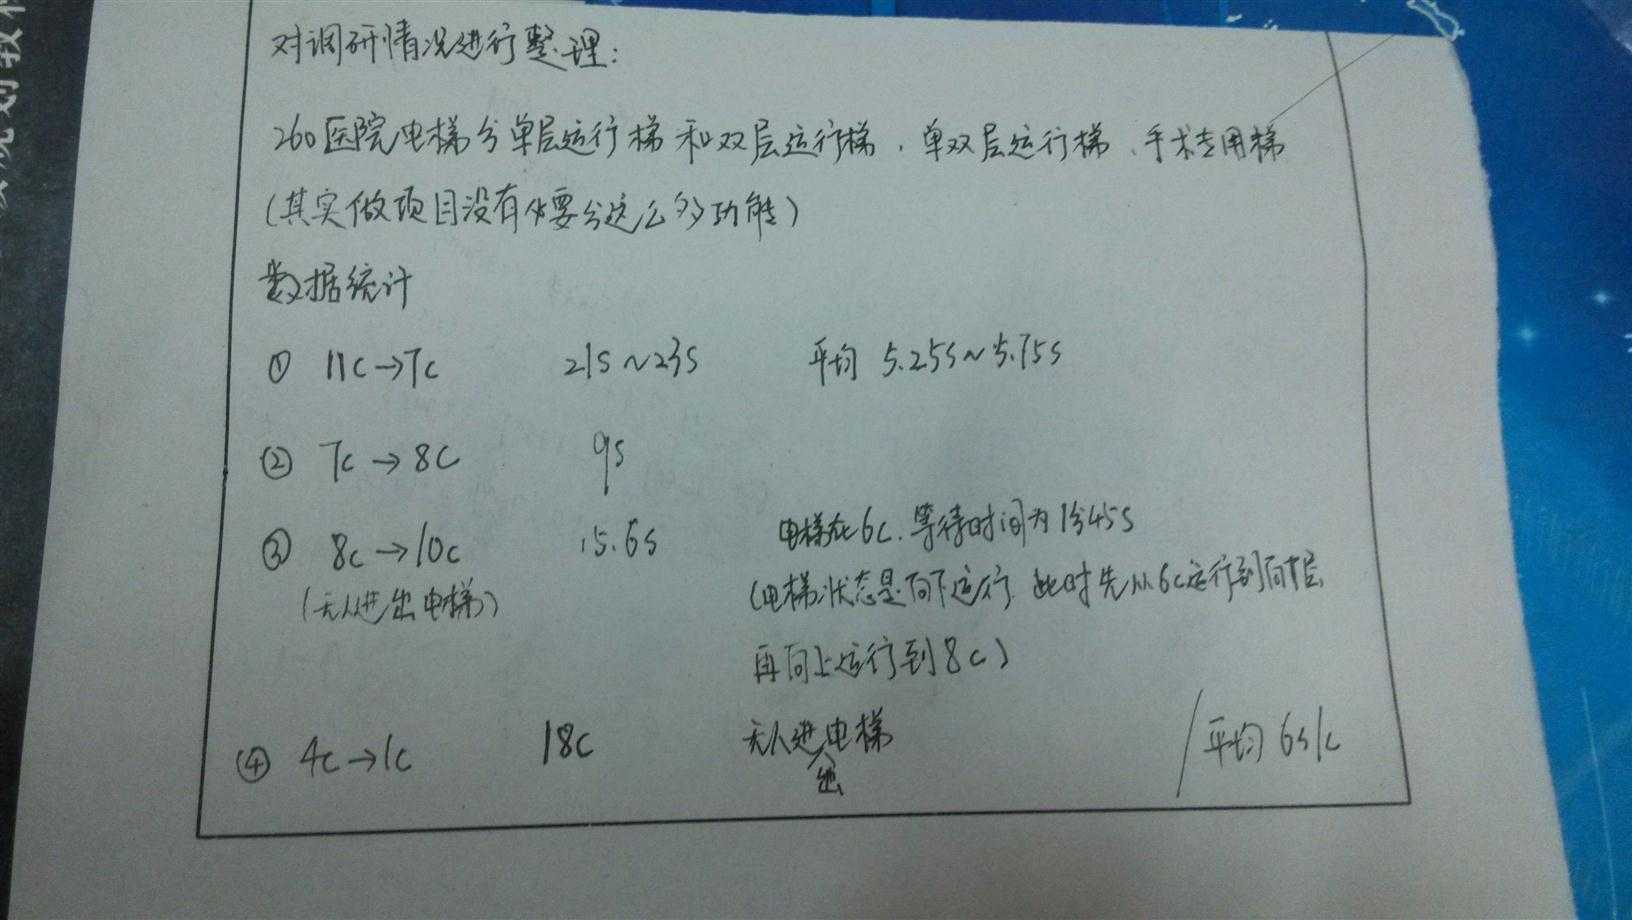 对调研情况进行整理:
260医院电梯分单层运行梯和双层运行梯、单双层运行梯、手术专用梯
(其实做项目没有必要分这么多功能)
数据统计
① 11C→7C 21S~23S 平均 5.25S~5.75S
② 7C→8C 9S
③ 8C→10C 15.6S 电梯在6C.等待时间为1分45S
(无人进出电梯) (电梯状态是向下运行.此时先从6C运行到
再向上运行到8C)
④ 4C→1C 18C 无人进出电梯 /平均 6S/C